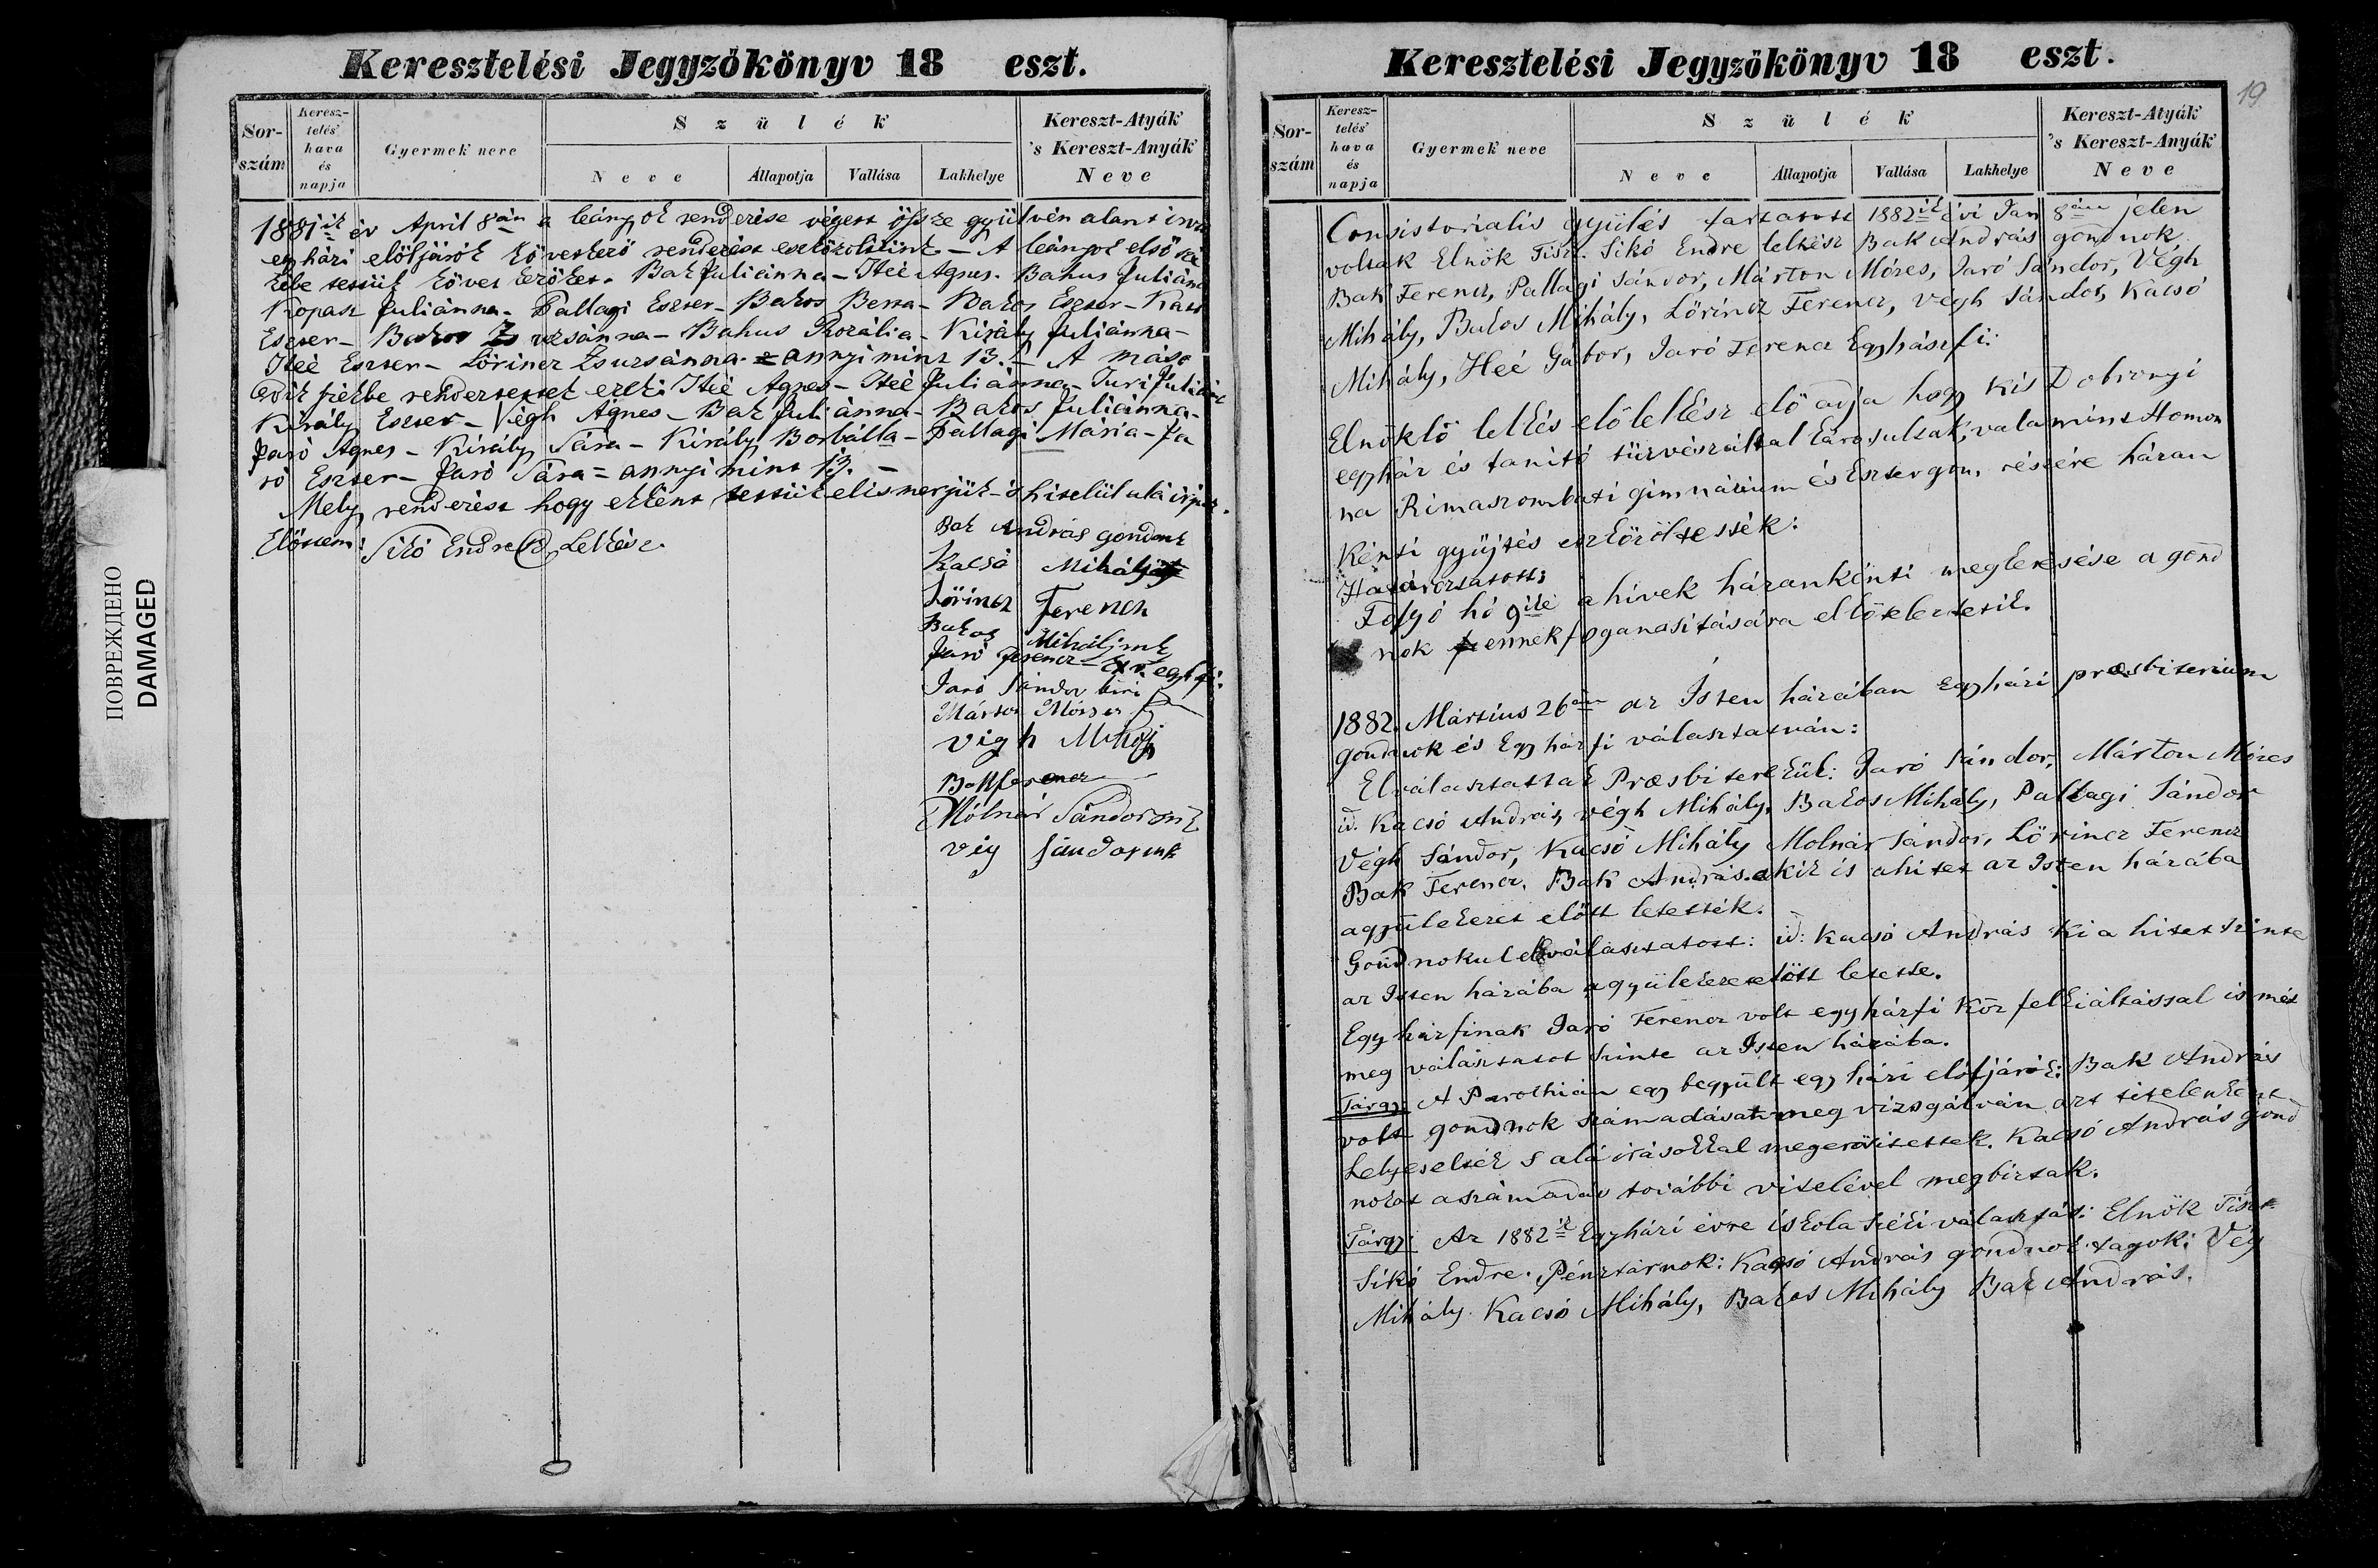 ПОВРЕЖДЕНО
DAMAGED
Keresztelési Jegyzőkönyv 18 eszt.
Sor-szám
Keresz-telés' hava és napja
Gyermek neve
Szülék
Neve
Állapotja
Vallása
Lakhelye
Kereszt-Atyák 's Kereszt-Anyák Neve
1881ik év April 8án a leányok renderése végett össze gyülvén alant irott
egyházi előljárók következő renderést eszközöltünk. – A leányok első szé
kébe tessük következőket. Bak Juliánna – Iteé Agnes. Bakus Juliána
Kopasz Juliánna – Pallagi Eszter – Bakos Berta – Bakos Eszter – Kacsó
Eszter – Bakos Zsuzsánna – Bakus Rozália – Király Juliánna –
Iteé Eszter – Lőrincz Zsuzsánna = annyi mint 13. – A máso
dik székbe rendertettek ezek: Iteé Agnes – Iteé Juliánna – Juri Juliána
Király Eszter – Végh Ágnes – Bak Juliánna – Bakos Juliánna –
Jaró Agnes – Király Sára – Király Borbálla – Pallagi Mária – Ja
ró Eszter – Jaró Sára = annyi mint 13. –
Mely renderést hogy ekként tessük elismerjük – s hitelül alá irjuk.
Előttem: Sikó Endre Lelkész
Bak András gondnok
Kacsó Mihály
Lőrincz Ferencz
Bakos Mihály mk
Jaró Ferencz egyhfi.
Jaró Sándor biri
Márton Mózses
vigh Mihály
Bak ferencz
Mólnár Sándor mk
vig Sándor mk
Keresztelési Jegyzőkönyv 18 eszt.
19
Sor-szám
Keresz-telés' hava és napja
Gyermek neve
Szülék
Neve
Állapotja
Vallása
Lakhelye
Kereszt-Atyák 's Kereszt-Anyák Neve
Consistorialis gyülés tartatott 1882ik évi Jan 8án jelen
voltak Elnök Tiszt. Sikó Endre lelkész Bak András gondnok
Bak Ferencz, Pallagi Sándor, Márton Mózes, Jaró Sándor, Végh
Mihály, Bakos Mihály, Lőrincz Ferencz, Végh Sándor, Kacsó
Mihály, Iteé Gabor, Jaró Ferencz Egyházfi:
Elnöklő lelkés elő lelkész elő adja hogy kis Dobronyi
egyház és tanitó tüzvész által károsultak, valamint Homon
na Rimaszombati gimnázium és Esztergom, részére házan
kénti gyüjtés eszközöltessék:
Határoztatott:
Folyó hó 9ike a hívek házankénti megkerésése a gond
nok ennek foganasitására elköteleztetik.
1882. Mártius 26án az Isten házában egyházi præsbiterium
gondnok és Egyházfi választatván:
Elválasztattak Præsbiterekül: Jaró Sándor, Márton Mózes
id. Kacsó András, végh Mihály, Bakos Mihály, Pallagi Sándor
Végh Sándor, Kacsó Mihály Molnár Sándor, Lőrincz Ferencz
Bak Ferencz, Bak András. akik is a hitet az Isten házába
a gyülekezet előtt letették.
Gondnokul elválasztatott: id: Kacsó András ki a hitet szinte
az Isten házába a gyülekezet előtt letette.
Egyházfinak Jaró Ferencz volt egyházfi köz felkiáltással ismét
meg választatot szinte az Isten házába.
Tárgy: A Parothián egybegyült egyházi előljárók: Bak András
volt gondnok számadásat meg vizsgálván azt tételenként
helyeselték s aláirásokkal megerősitettek. Kacsó András gond
nokot a számadás további vitelével megbizták.
Tárgy: Az 1882ik Egyházi évre iskola széki választás: Elnök Tiszt.
Sikó Endre. Pénztárnok: Kacsó András gondnok. tagok: Vég
Mihály Kacsó Mihály, Bakos Mihály Bak András.